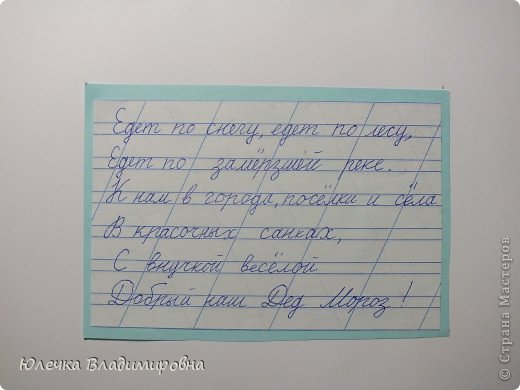 Едет по снегу, едет по лесу,
Едет по замёрзшей реке.
К нам в города, посёлки и сёла
В красочных санках,
С внучкой весёлой
Добрый наш Дед Мороз!
Юлечка Владимировна
© Страна Мастеров